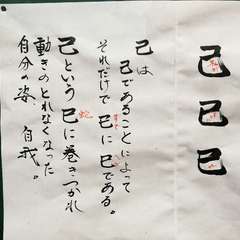 己
已
巳
己は
己であることによって
それだけで 已に 巳である。
己という 巳に巻きつかれ
蛇
動きのとれなくなった
自分の姿 自我。